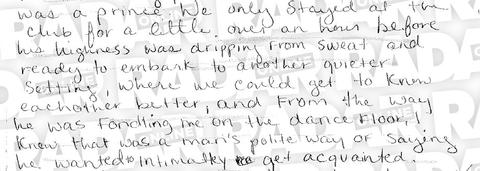 was a prince. We only stayed at the
club for a little over an hour before
his highness was dripping from sweat and
ready to embark to another quieter
setting, where we could get to know
eachother better, and from the way
he was fondling me on the dance floor, I
knew that was a man's polite way of saying
he wanted to intimatly get acquainted.